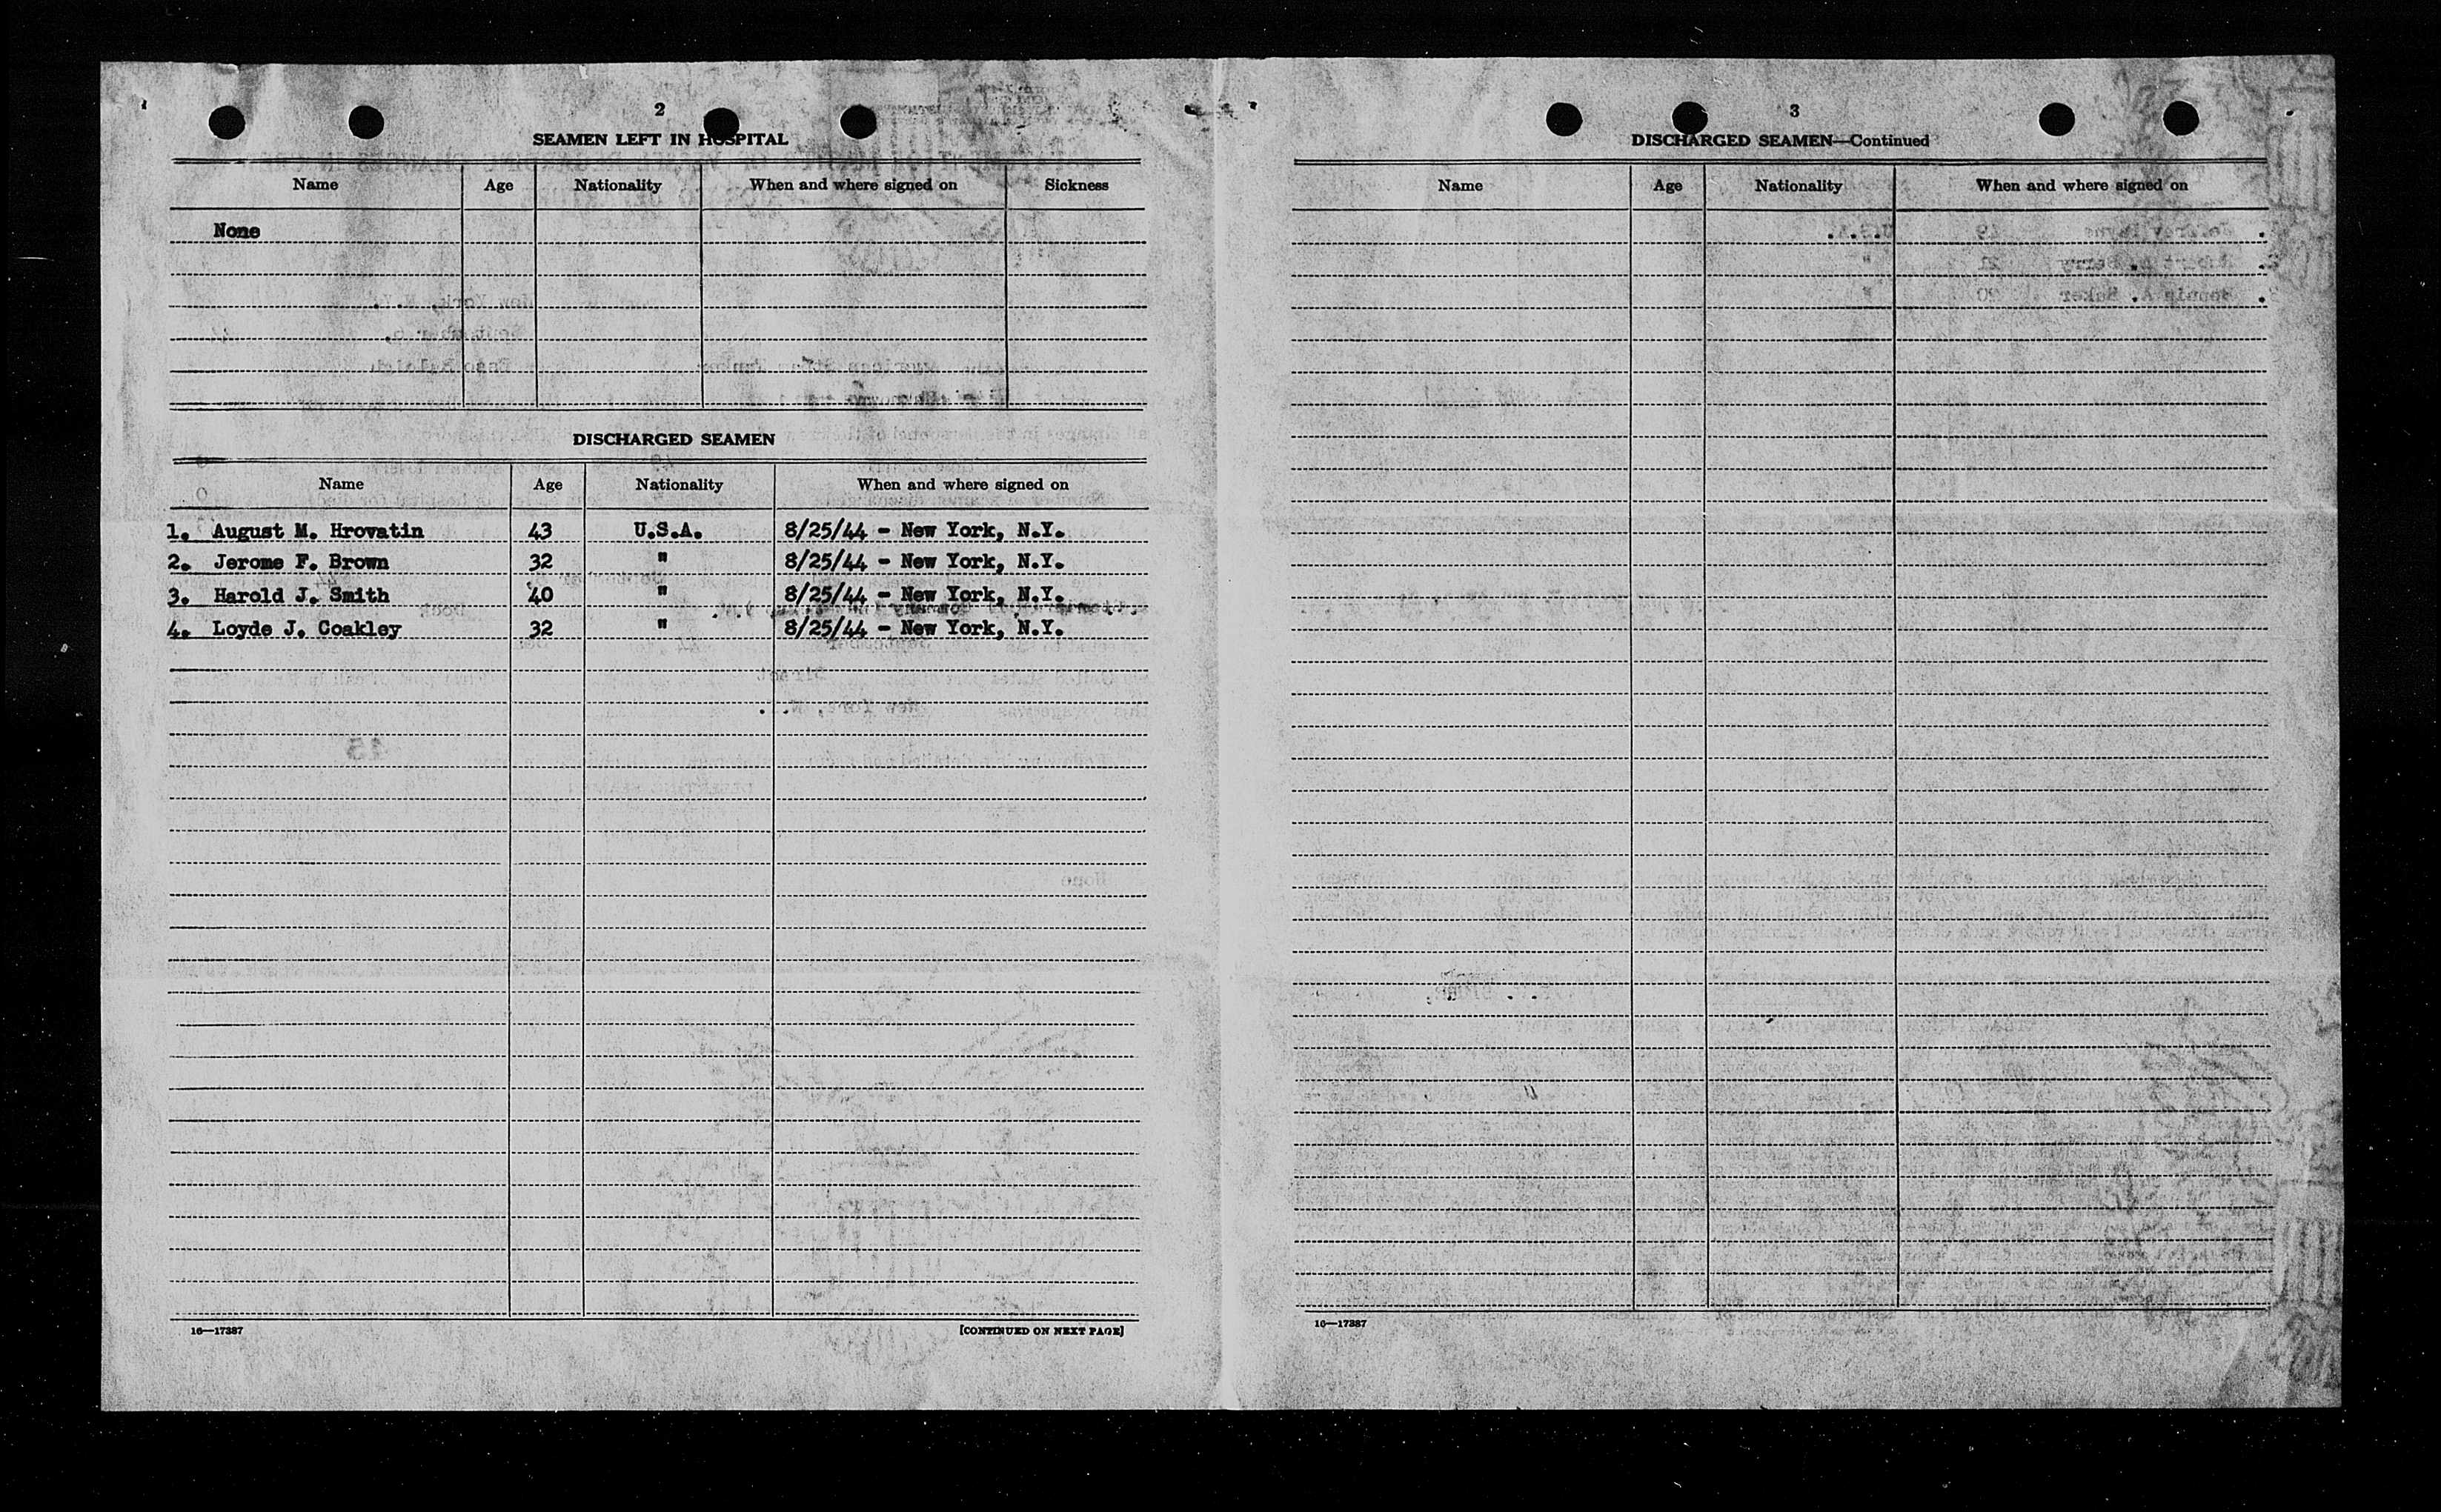 2
SEAMEN LEFT IN HOSPITAL
Name Age Nationality When and where signed on Sickness
None
DISCHARGED SEAMEN
Name Age Nationality When and where signed on
1. August M. Hrovatin 43 U.S.A. 8/25/44 - New York, N.Y.
2. Jerome F. Brown 32 " 8/25/44 - New York, N.Y.
3. Harold J. Smith 40 " 8/25/44 - New York, N.Y.
4. Loyde J. Coakley 32 " 8/25/44 - New York, N.Y.
16—17387 [CONTINUED ON NEXT PAGE]
3
DISCHARGED SEAMEN—Continued
Name Age Nationality When and where signed on
16—17387